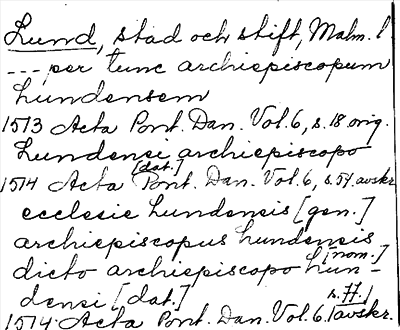 Lund, stad och stift, Malm. l
--- per tunc archiepiscopum
Lundensem
1513 Acta Pont. Dan. Vol. 6, s. 18 orig.
Lundensi archiepiscopo
[dat.]
1514 Acta Pont. Dan. Vol. 6, s. 54 avskr.
ecclesie Lundensis [gen.]
archiepiscopus Lundensis
[nom.]
dicto archiepiscopo Lun-
densi [dat.]
1514 Acta Pont. Dan. Vol. 6. avskr.